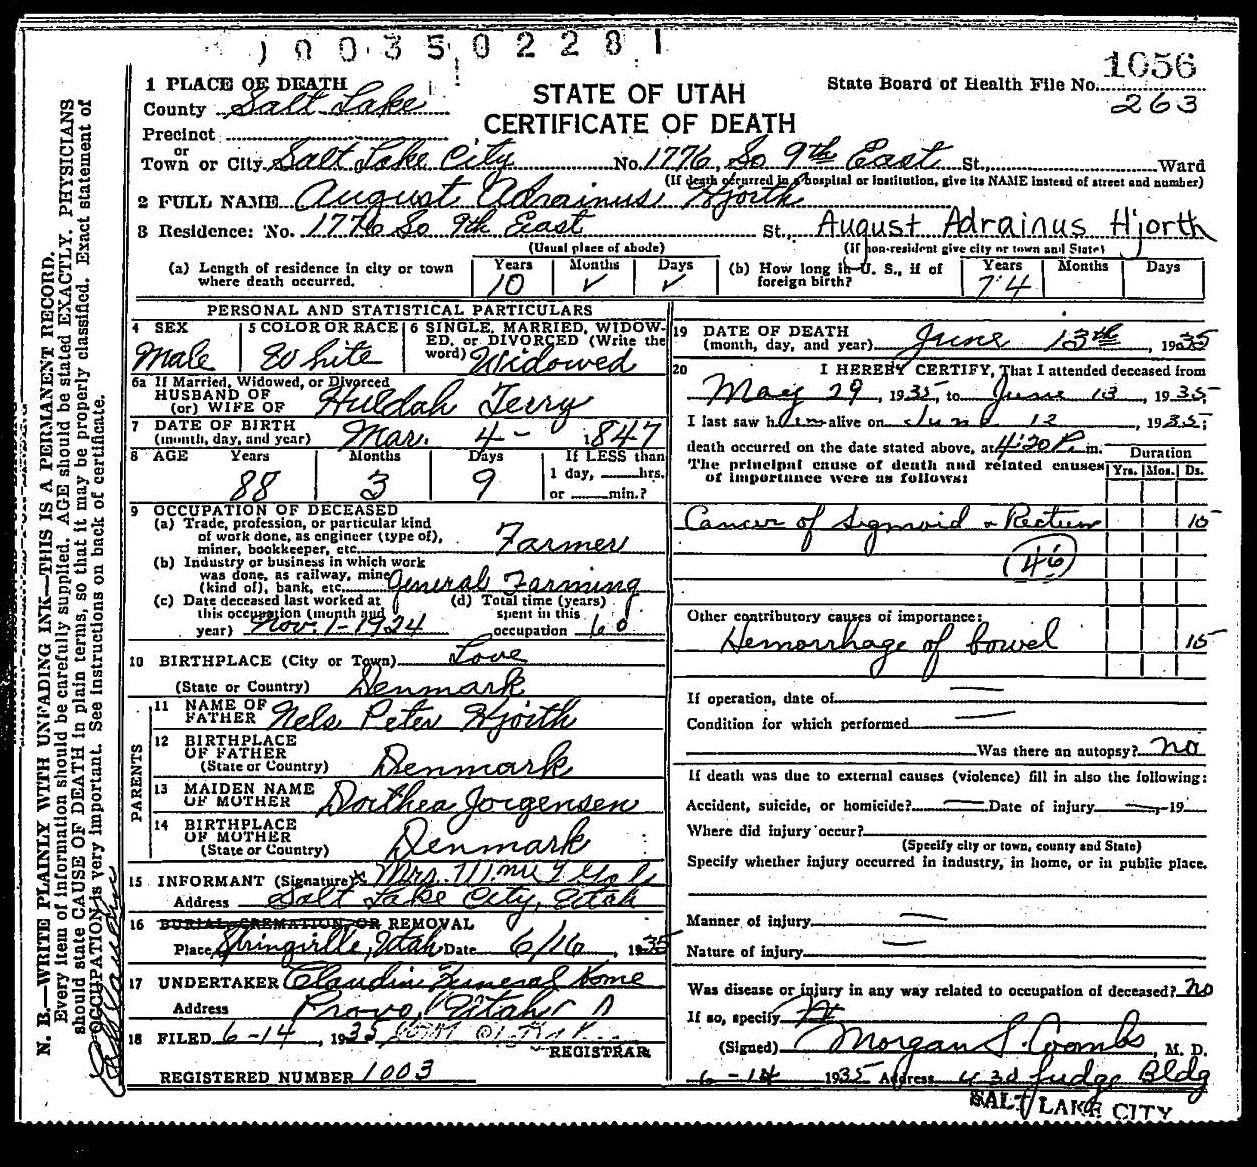 1003502281
1056
263
1 PLACE OF DEATH
County Salt Lake
STATE OF UTAH
CERTIFICATE OF DEATH
State Board of Health File No.
Precinct
or
Town or City Salt Lake City No. 1776 So 9th East St., Ward
(If death occurred in a hospital or institution, give its NAME instead of street and number)
2 FULL NAME August Adrainus Hjorth
3 Residence: No. 1776 So 9th East St., August Adrainus Hjorth
(Usual place of abode) (If non-resident give city or town and State)
(a) Length of residence in city or town where death occurred. Years 10 Months ✓ Days ✓ (b) How long in U. S., if of foreign birth? Years 74 Months Days
PERSONAL AND STATISTICAL PARTICULARS
4 SEX Male
5 COLOR OR RACE White
6 SINGLE, MARRIED, WIDOWED, or DIVORCED (Write the word) Widowed
6a If Married, Widowed, or Divorced
HUSBAND OF
(or) WIFE OF Huldah Terry
7 DATE OF BIRTH
(month, day, and year) Mar. 4 - 1847
8 AGE Years 88 Months 3 Days 9 If LESS than 1 day, hrs. or min.?
9 OCCUPATION OF DECEASED
(a) Trade, profession, or particular kind
of work done, as engineer (type of),
miner, bookkeeper, etc. Farmer
(b) Industry or business in which work
was done, as railway, mine
(kind of), bank, etc. General Farming
(c) Date deceased last worked at
this occupation (month and
year) Nov. 1-1924
(d) Total time (years)
spent in this
occupation 60
10 BIRTHPLACE (City or Town) Love
(State or Country) Denmark
PARENTS
11 NAME OF FATHER Nels Peter Hjorth
12 BIRTHPLACE OF FATHER
(State or Country) Denmark
13 MAIDEN NAME OF MOTHER Dorthea Jorgensen
14 BIRTHPLACE OF MOTHER
(State or Country) Denmark
15 INFORMANT (Signature) Mrs.
Address Salt Lake City, Utah
16 BURIAL, CREMATION, OR REMOVAL
Place, Springville, Utah Date 6/16, 1935
17 UNDERTAKER Claudin Funeral Home
Address Provo, Utah
18 FILED 6-14, 1935
REGISTRAR
REGISTERED NUMBER 1003
19 DATE OF DEATH
(month, day, and year) June 13th, 1935
20 I HEREBY CERTIFY, That I attended deceased from
May 29, 1935, to June 13, 1935;
I last saw him alive on June 12, 1935;
death occurred on the date stated above, at 4:20 P. m.
The principal cause of death and related causes
of importance were as follows:
Duration
Yrs. Mos. Ds.
Cancer of Sigmoid & Rectum 15
(46)
Other contributory causes of importance:
Hemorrhage of bowel 15
If operation, date of —
Condition for which performed —
Was there an autopsy? no
If death was due to external causes (violence) fill in also the following:
Accident, suicide, or homicide? — Date of injury — 19
Where did injury occur?
(Specify city or town, county and State)
Specify whether injury occurred in industry, in home, or in public place.
Manner of injury —
Nature of injury —
Was disease or injury in any way related to occupation of deceased? no
If so, specify
(Signed) Morgan S. Coombs, M. D.
6-14 1935 Address 430 Judge Bldg
SALT LAKE CITY
N. B.—WRITE PLAINLY WITH UNFADING INK—THIS IS A PERMANENT RECORD.
Every item of information should be carefully supplied. AGE should be stated EXACTLY. PHYSICIANS
should state CAUSE OF DEATH in plain terms, so that it may be properly classified. Exact statement of
OCCUPATION is very important. See instructions on back of certificate.